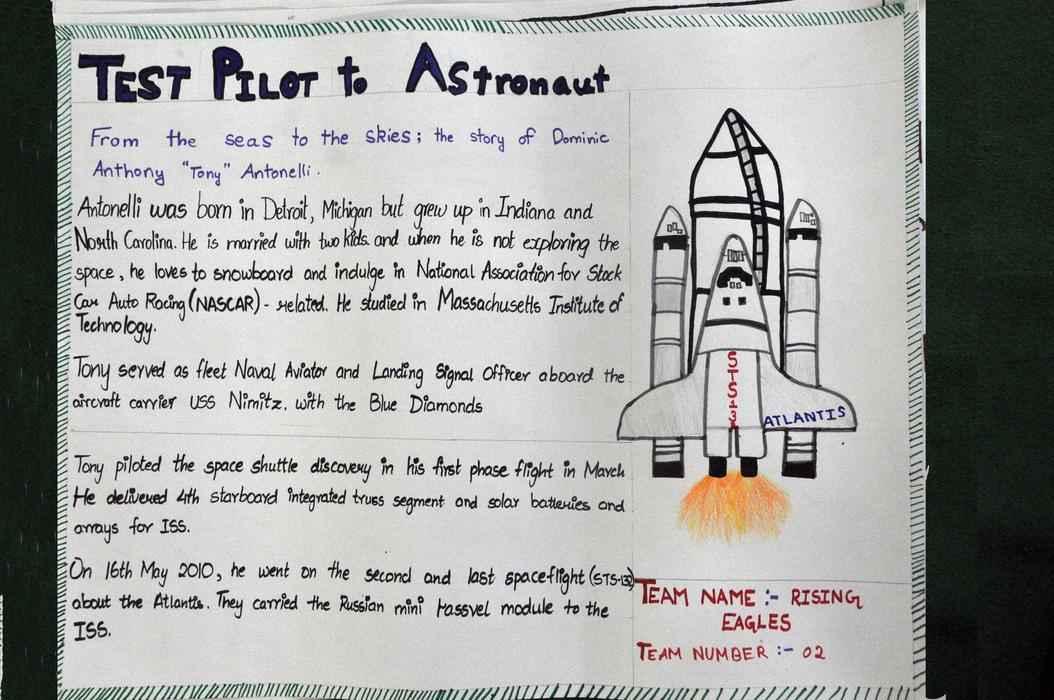 TEST PILOT to Astronaut
From the seas to the skies; the story of Dominic
Anthony "Tony" Antonelli.
Antonelli was born in Detroit, Michigan but grew up in Indiana and
North Carolina. He is married with two kids and when he is not exploring the
space, he loves to snowboard and indulge in National Association for Stock
Car Auto Racing (NASCAR) - related. He studied in Massachusetts Institute of
Technology.
Tony served as fleet Naval Aviator and Landing Signal Officer aboard the
aircraft carrier USS Nimitz, with the Blue Diamonds
Tony piloted the space shuttle discovery in his first phase flight in March
He delivered 4th starboard integrated truss segment and solar batteries and
arrays for ISS.
On 16th May 2010, he went on the second and last spaceflight (STS-132)
about the Atlantis. They carried the Russian mini rassvel module to the
ISS.
ATLANTIS
TEAM NAME :- RISING
EAGLES
TEAM NUMBER :- 02